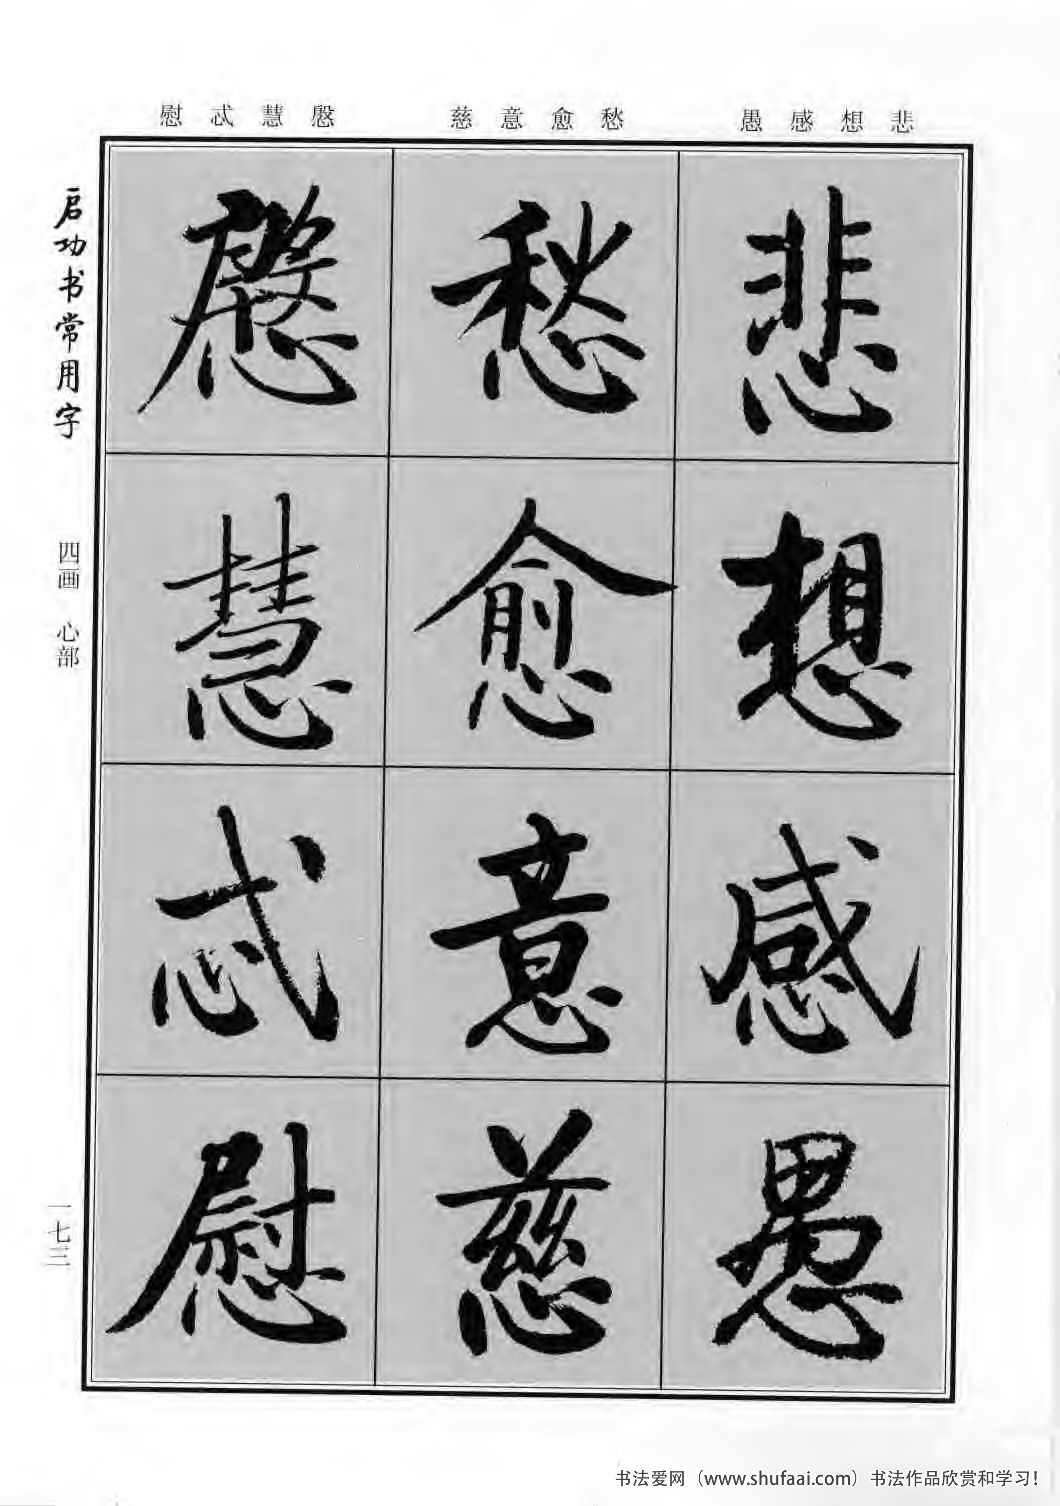 悲想感愚
愁愈意慈
慇慧忒慰
悲想感愚
愁愈意慈
慇慧忒慰
启功书常用字
四画 心部
一七三
书法爱网（www.shufaai.com）书法作品欣赏和学习！